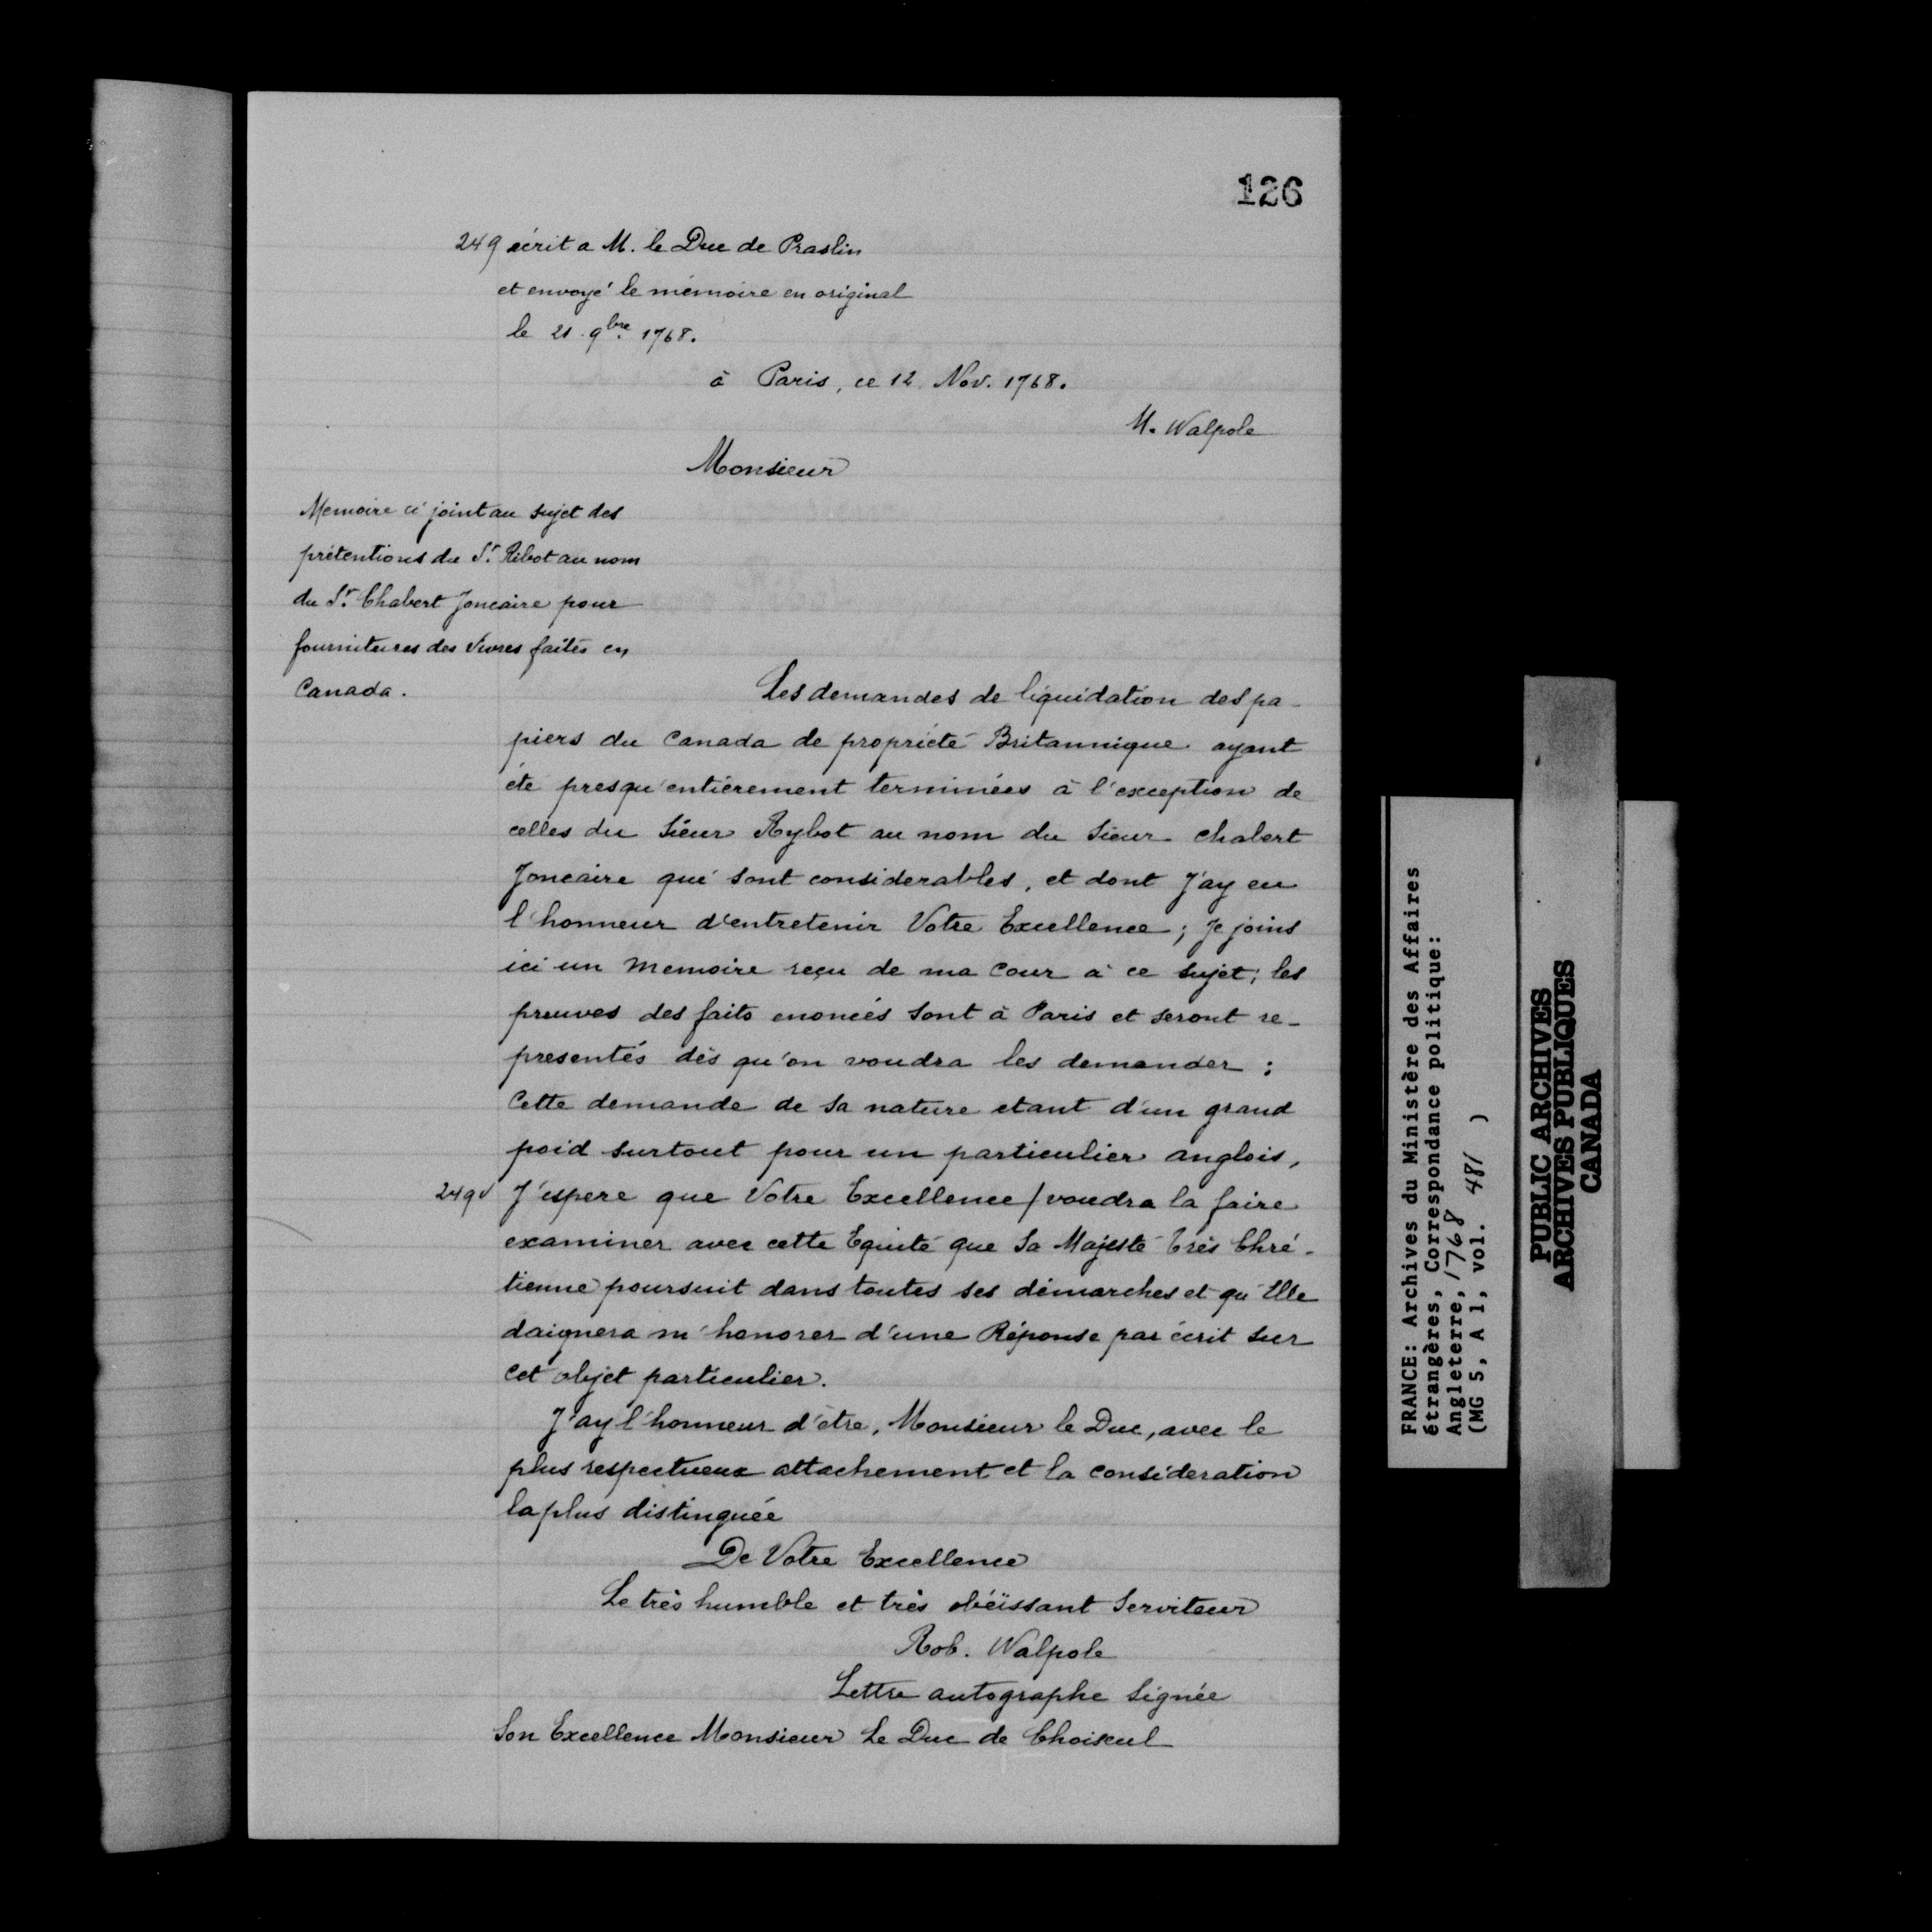 126
249 écrit a M. le Duc de Praslin
et envoyé le mémoire en original
le 21. 9bre. 1768.
à Paris, ce 12 Nov. 1768.
M. Walpole
Monsieur
Memoire ci joint au sujet des
prétentions du Sr. Ribot au nom
du Sr. Chabert Joncaire pour
fournitures des vivres faites en
Canada.
Les demandes de liquidation des pa-
piers du Canada de propriété Britannique ayant
été presqu'entiérement terminées à l'exception de
celles du Sieur Rybot au nom du Sieur Chabert
Joncaire qui sont considerables, et dont J'ay eu
l'honneur d'entretenir Votre Excellence; Je joins
ici un Memoire reçu de ma Cour à ce sujet; les
preuves des faits enoncés sont à Paris et seront re-
presentés dès qu'on voudra les demander;
Cette demande de sa nature etant d'un grand
poid surtout pour un particulier anglois,
249v J'espere que Votre Excellence / voudra la faire
examiner avec cette Equité que Sa Majesté très Chré-
tienne poursuit dans toutes ses démarches et qu'Elle
daignera m'honorer d'une Réponse par écrit sur
cet objet particulier.
J'ay l'honneur d'être, Monsieur le Duc, avec le
plus respectueux attachement et la consideration
la plus distinguée
De Votre Excellence
Le très humble et très obéïssant Serviteur
Rob. Walpole
Lettre autographe signée
Son Excellence Monsieur Le Duc de Choiseul
FRANCE: Archives du Ministère des Affaires
étrangères, Correspondance politique:
Angleterre, 1768
(MG 5, A 1, vol. 481 )
PUBLIC ARCHIVES
ARCHIVES PUBLIQUES
CANADA